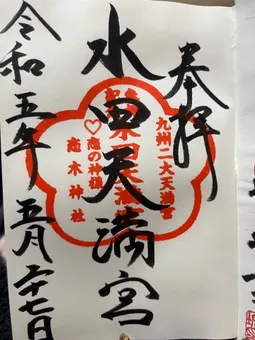 奉拝
九州二大天満宮
水田天満宮
恋の神様
恋木神社
令和五年五月二十七日